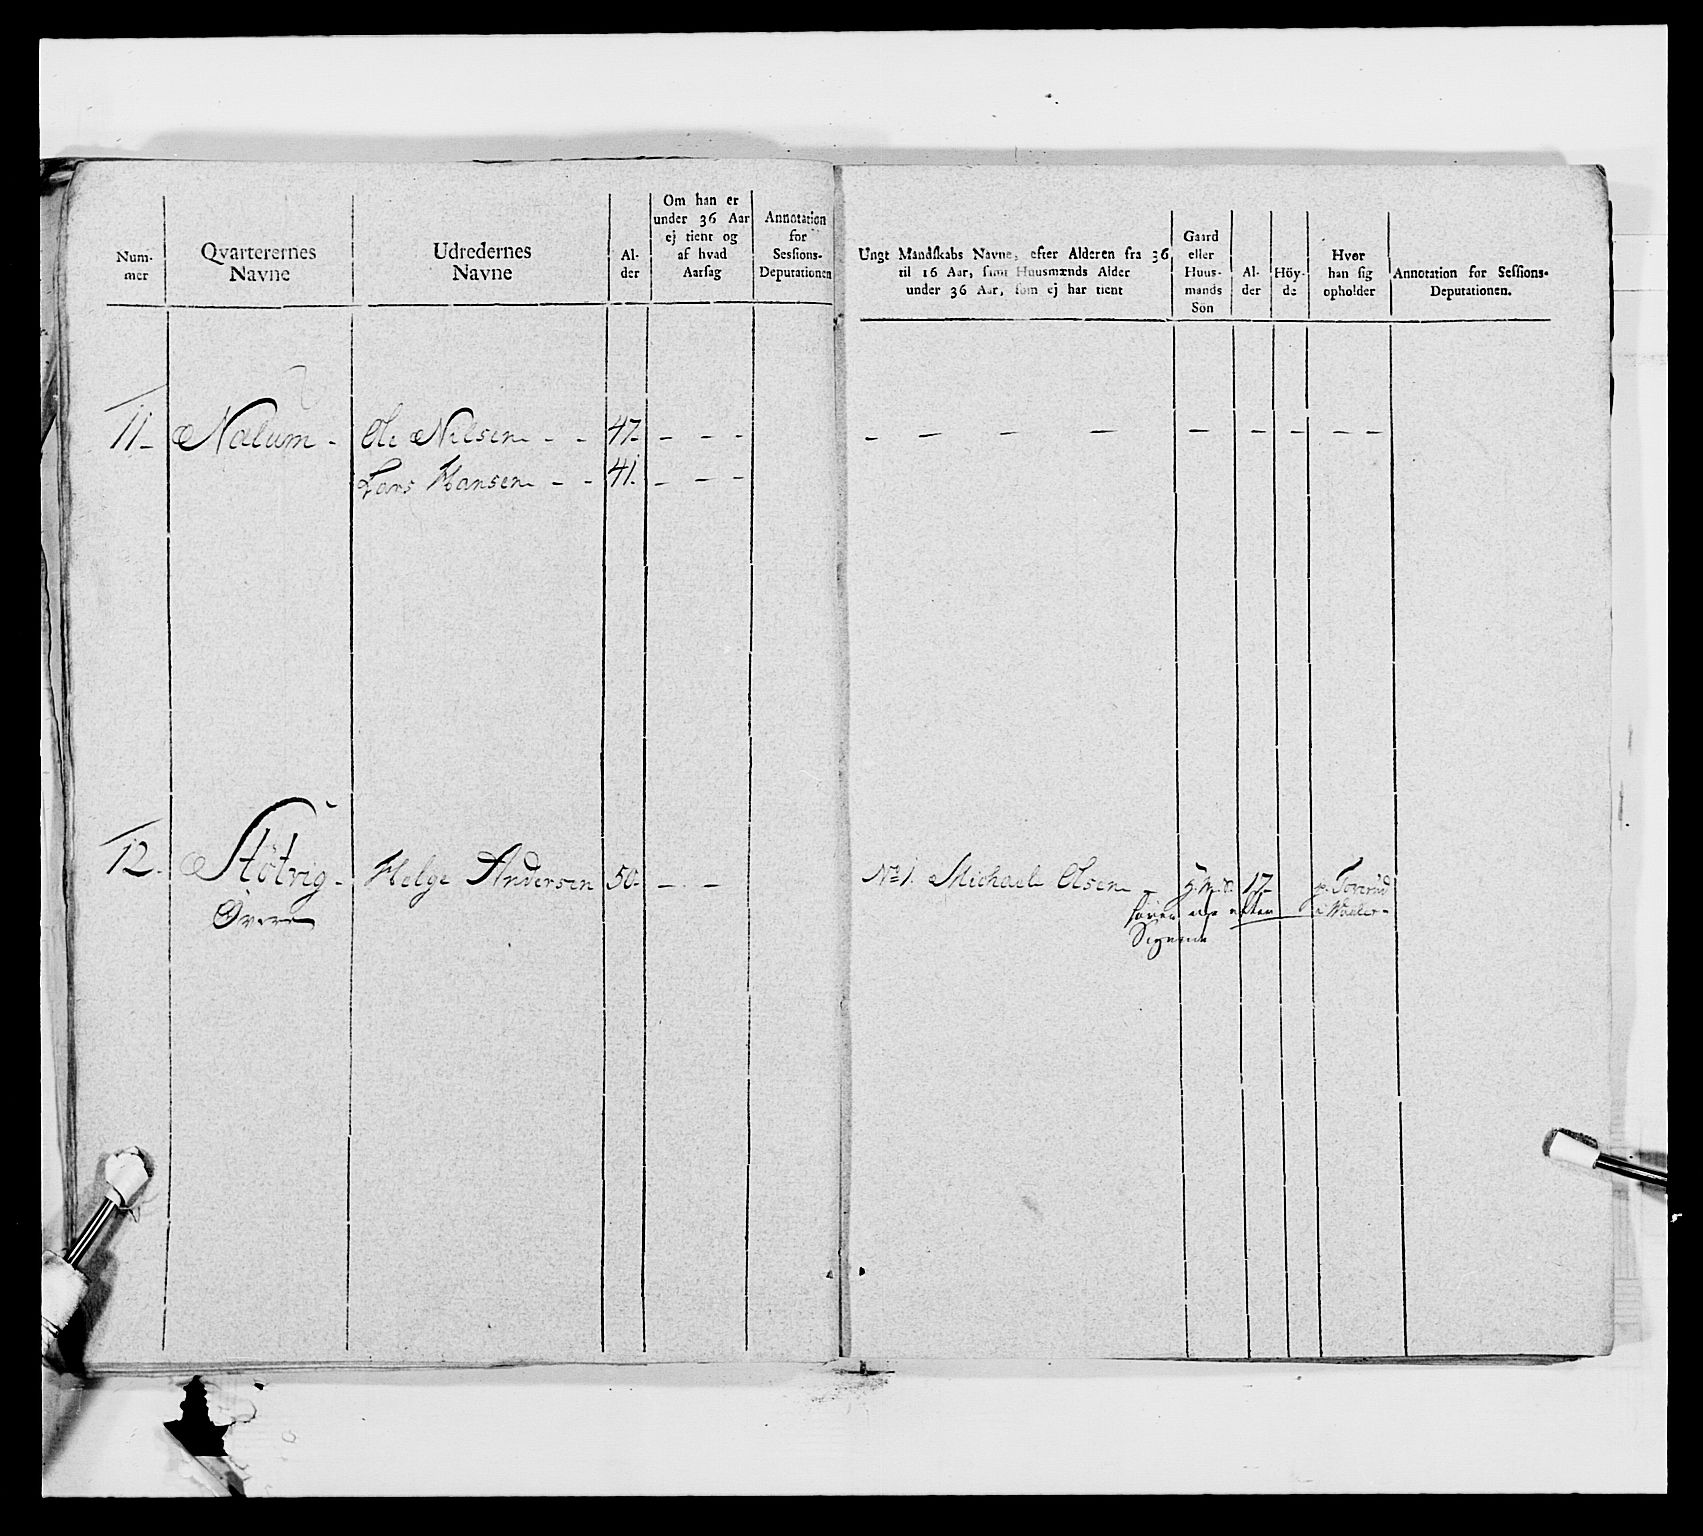 Num-
mer
Qvarterernes
Navne
Udredernes
Navne
Al-
der
Om han er
under 36 Aar
ej tient og
af hvad
Aarsag
Annotation
for
Sessions-
Deputationen
Ungt Mandskabs Navne, efter Alderen fra 36
til 16 Aar, samt Huusmænds Alder
under 36 Aar, som ej har tient
Gaard
eller
Huus-
mands
Sön
Al-
der
Höy-
de
Hvor
han sig
opholder
Annotation for Sessions-
Deputationen.
11 - Nalum - Ole Nilsen - - 47 - - - -
Lars Hansen - - 41 - - -
12 - Støtvig - Helge Andersen 50 - - - No 1. Michael Olsen - 17 -
Øvere
efter